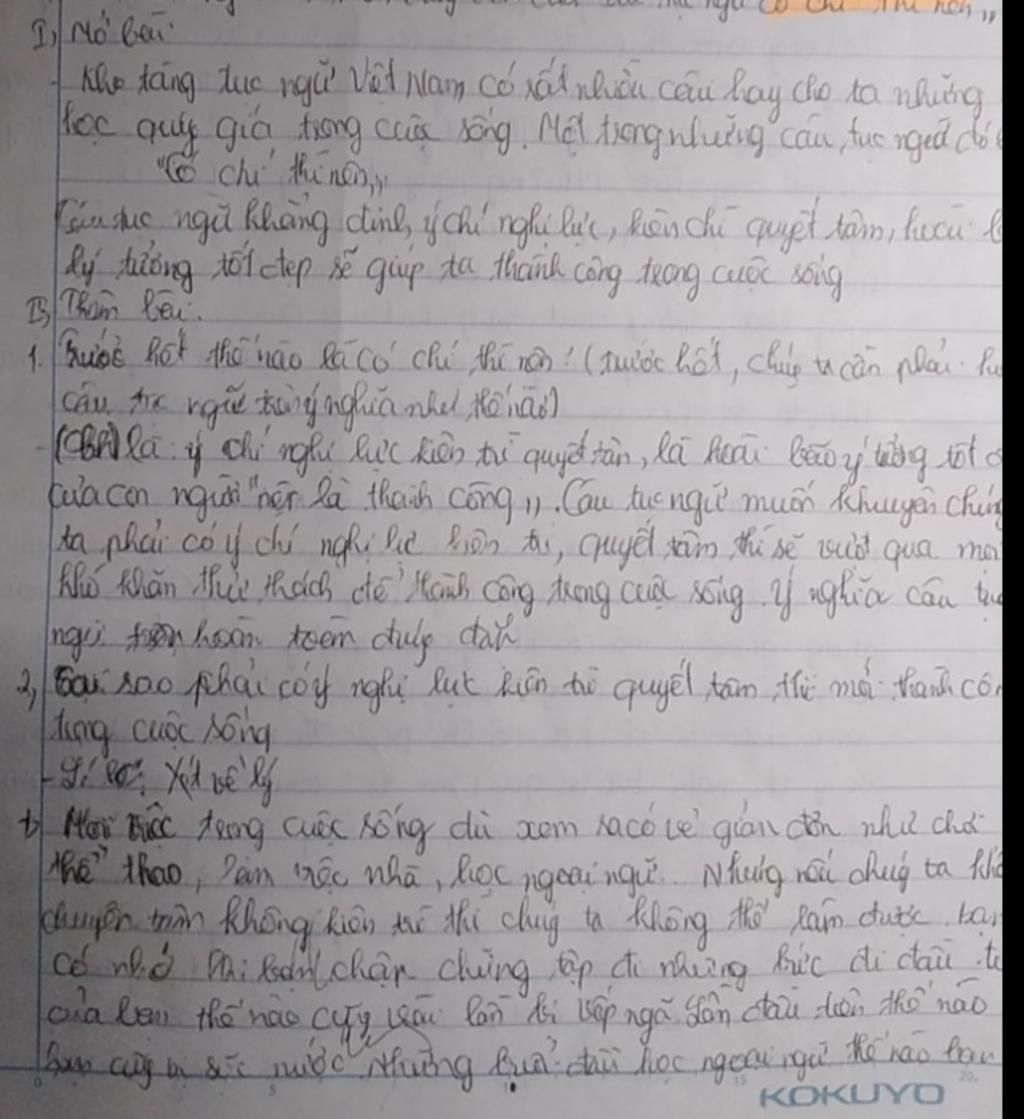 ngữ có chí thì nên"
I, Mở bài:
- Kho tàng tục ngữ Việt Nam có rất nhiều câu hay cho ta những
học quý giá trong cuộc sống. Một trong những câu tục ngữ đó
"Có chí thì nên"
Câu tục ngữ khẳng định, ý chí nghị lực, kiên chí quyết tâm, hoài
lý tưởng tốt đẹp sẽ giúp ta thành công trong cuộc sống
Thân bài.
1. Trước hết thế nào là có chí thì nên? (trước hết, chúng ta cần phải
câu tục ngữ này ý nghĩa như thế nào)
- là ý chí nghị lực kiên trì quyết tâm, là hoài bão lý tưởng tốt
của con người "nên là thành công". Câu tục ngữ muốn khuyên chúng
ta phải có ý chí nghị lực kiên trì, quyết tâm thì sẽ vượt qua mọi
khó khăn thử thách để thành công trong cuộc sống. Ý nghĩa câu tục
ngữ hoàn toàn đúng đắn
2, Tại sao phải có ý nghị lực kiên trì quyết tâm thì mới thành cô
trong cuộc sống
- Xét về lý
+ Mọi việc trong cuộc sống dù xem ra có vẻ giản đơn như chơi
thể thao, làm việc nhà, học ngoại ngữ.. Nhưng nếu chúng ta khô
chuyên tâm không kiên trì thì chúng ta không thể làm được. bạn
có nhớ khi chập chững tập đi những bước đi đầu t
của bạn thế nào cũng lần bị vấp ngã lần đầu tiên thế nào
bạn cũng bị sặc nước. Những buổi đầu học ngoại ngữ thế nào bạn
KOKUYO